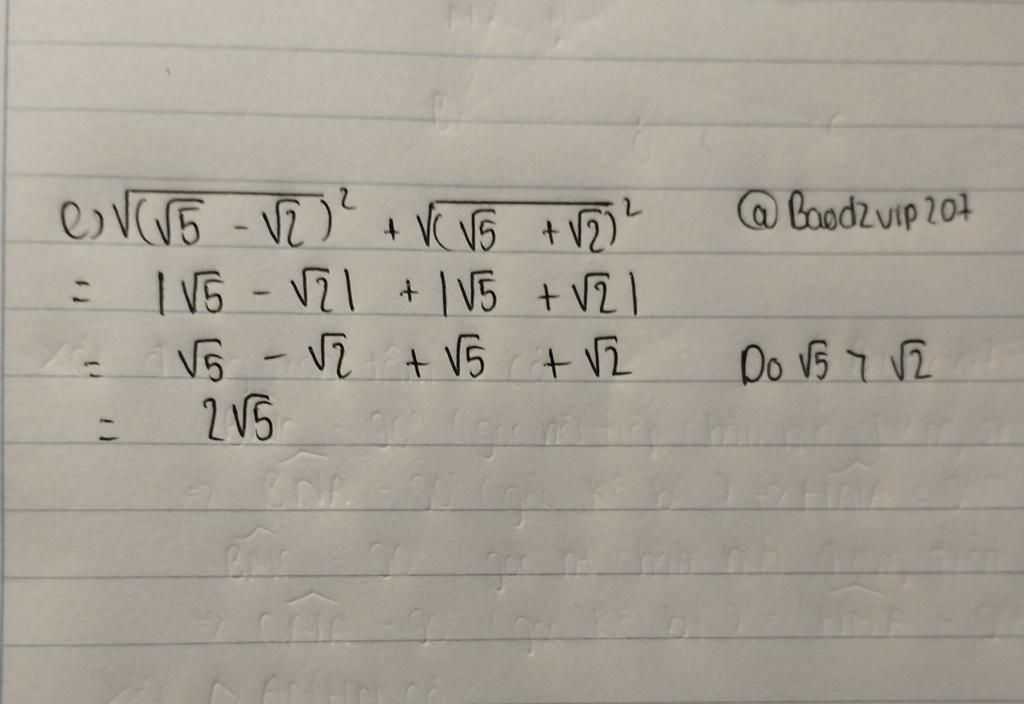 e) √(√5 - √2)² + √(√5 + √2)² @Baodzvip207
= |√5 - √2| + |√5 + √2|
= √5 - √2 + √5 + √2 Do √5 > √2
= 2√5